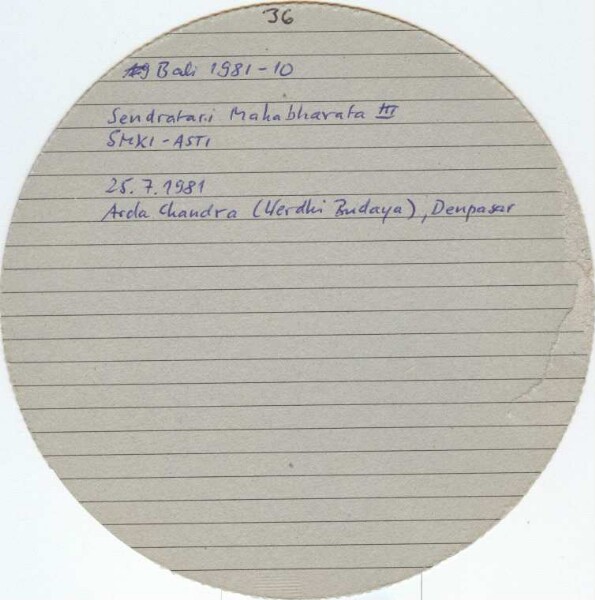 36
Bali 1981-10
Sendratari Mahabharata III
SMKI-ASTI
25.7.1981
Arda Chandra (Werdhi Budaya), Denpasar